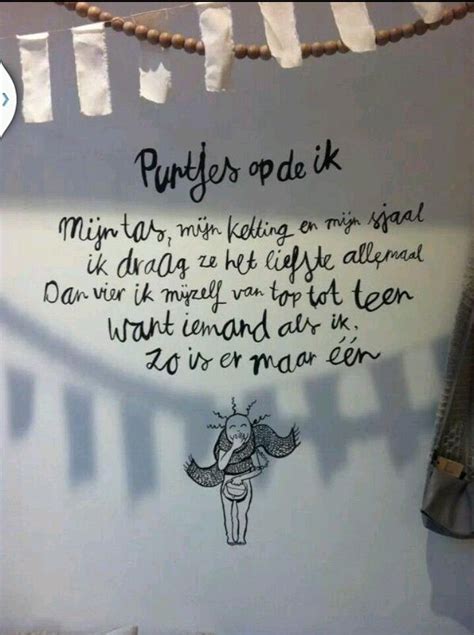 Puntjes op de ik
Mijn tas, mijn ketting en mijn sjaal
ik draag ze het liefste allemaal
Dan vier ik mijzelf van top tot teen
want iemand als ik,
zo is er maar één